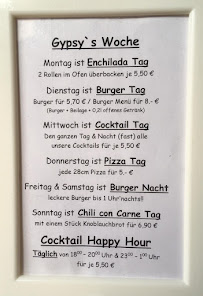 Gypsy`s Woche
Montag ist Enchilada Tag
2 Rollen im Ofen überbacken je 5,50 €
Dienstag ist Burger Tag
Burger für 5,70 € / Burger Menü für 8.- €
(Burger + Beilage + 0,2l offenes Getränk)
Mittwoch ist Cocktail Tag
Den ganzen Tag & Nacht (fast) alle
unsere Cocktails für je 5,50 €
Donnerstag ist Pizza Tag
jede 28cm Pizza für 5.- €
Freitag & Samstag ist Burger Nacht
leckere Burger bis 1 Uhr'nachts!!
Sonntag ist Chili con Carne Tag
mit einem Stück Knoblauchbrot für 6,90 €
Cocktail Happy Hour
Täglich von 18⁰⁰ - 20⁰⁰ Uhr & 23⁰⁰ - 1⁰⁰ Uhr
für je 5,50 €